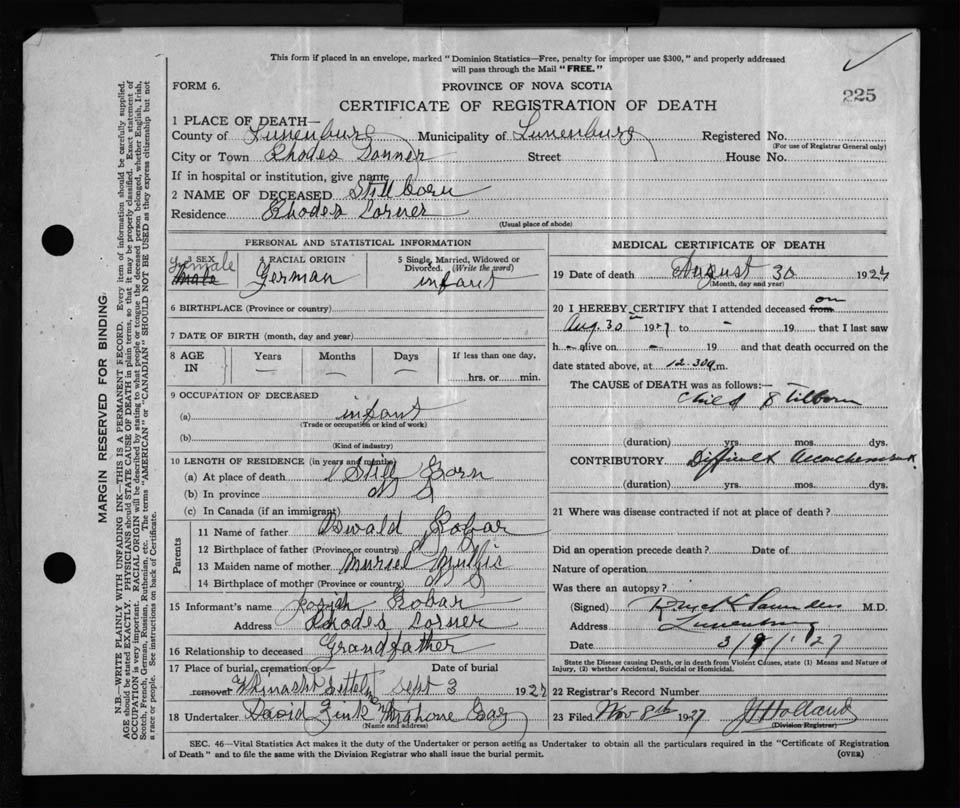 This form if placed in an envelope, marked "Dominion Statistics—Free, penalty for improper use $300," and properly addressed
will pass through the Mail "FREE."
FORM 6.
PROVINCE OF NOVA SCOTIA
225
CERTIFICATE OF REGISTRATION OF DEATH
1 PLACE OF DEATH—
County of Lunenburg Municipality of Lunenburg Registered No.
(For use of Registrar General only)
City or Town Rhodes Corner Street House No.
If in hospital or institution, give name
2 NAME OF DECEASED Stillborn
Residence Rhodes Corner
(Usual place of abode)
PERSONAL AND STATISTICAL INFORMATION
3 SEX Female Male
4 RACIAL ORIGIN German
5 Single, Married, Widowed or Divorced. (Write the word) infant
6 BIRTHPLACE (Province or country)
7 DATE OF BIRTH (month, day and year)
8 AGE IN Years — Months — Days — If less than one day, hrs. or min.
9 OCCUPATION OF DECEASED
(a) infant
(Trade or occupation or kind of work)
(b)
(Kind of industry)
10 LENGTH OF RESIDENCE (in years and months)
(a) At place of death Still Born
(b) In province N S
(c) In Canada (if an immigrant)
Parents
11 Name of father Oswald Kobar
12 Birthplace of father (Province or country) N S
13 Maiden name of mother Muriel
14 Birthplace of mother (Province or country) N S
15 Informant's name Josiah Kobar
Address Rhodes Corner
16 Relationship to deceased Grandfather
17 Place of burial, cremation or removal Date of burial
Sept 3 1927
18 Undertaker David Zink Mahone Bay
(Name and address)
MEDICAL CERTIFICATE OF DEATH
19 Date of death August 30 1927
(Month, day and year)
20 I HEREBY CERTIFY that I attended deceased from on
Aug. 30 1927 to - 19 that I last saw
h - alive on - 19 and that death occurred on the
date stated above, at 12.30 m.
The CAUSE of DEATH was as follows:—
Child Stillborn
(duration) yrs. mos. dys.
CONTRIBUTORY Difficult
(duration) yrs. mos. dys.
21 Where was disease contracted if not at place of death?
Did an operation precede death? Date of
Nature of operation
Was there an autopsy?
(Signed) Saunders M.D.
Address Lunenburg
Date 3/9/1927
State the Disease causing Death, or in death from Violent Causes, state (1) Means and Nature of
Injury, (2) whether Accidental, Suicidal or Homicidal.
22 Registrar's Record Number
23 Filed Nov 8th 1927 J Holland
(Division Registrar)
SEC. 46—Vital Statistics Act makes it the duty of the Undertaker or person acting as Undertaker to obtain all the particulars required in the "Certificate of Registration
of Death" and to file the same with the Division Registrar who shall issue the burial permit.
(OVER)
MARGIN RESERVED FOR BINDING.
N.B.—WRITE PLAINLY WITH UNFADING INK—THIS IS A PERMANENT RECORD. Every item of information should be carefully supplied.
AGE should be stated EXACTLY. PHYSICIANS should STATE CAUSE OF DEATH in plain terms, so that it may be properly classified. Exact statement of
OCCUPATION is very important. RACIAL ORIGIN will be described by stating to what people or tongue the deceased person belonged, whether English, Irish,
Scotch, French, German, Russian, Ruthenian, etc. The terms "AMERICAN" or "CANADIAN" SHOULD NOT BE USED as they express citizenship but not
a race or people. See instructions on back of Certificate.